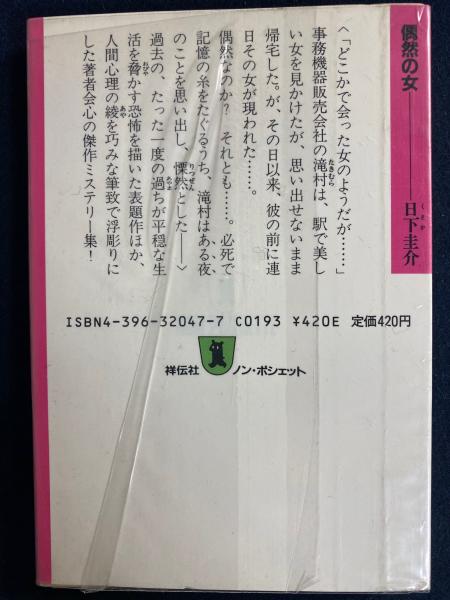 偶然の女――日下圭介
くさか
〈「どこかで会った女のようだが………」
事務機器販売会社の滝村は、駅で美し
たきむら
い女を見かけたが、思い出せないまま
帰宅した。が、その日以来、彼の前に連
日その女が現われた……。
偶然なのか? それとも……。必死で
記憶の糸をたぐるうち、滝村はある、夜
のことを思い出し、慄然とした――〉
りつぜん
過去の、たった一度の過ちが平穏な生
あやま
活を脅かす恐怖を描いた表題作ほか、
おびや
人間心理の綾を巧みな筆致で浮彫りに
あや
した著者会心の傑作ミステリー集!
ISBN4-396-32047-7 C0193 ¥420E 定価420円
祥伝社 ノン・ポシェット